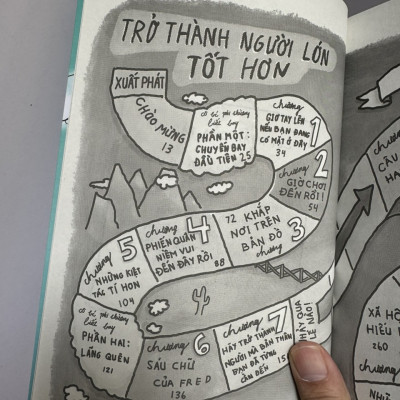 TRỞ THÀNH NGƯỜI LỚN
TỐT HƠN
XUẤT PHÁT
CHÀO MỪNG
13
PHẦN MỘT:
CHUYẾN BAY
ĐẦU TIÊN 25
chương
1
GIƠ TAY LÊN
NẾU BẠN ĐANG
CÓ MẶT Ở ĐÂY
34
2
chương
GIỜ CHƠI
ĐẾN RỒI!
54
72 KHẮP
NƠI TRÊN
BẢN ĐỒ
chương
3
chương
4
PHIẾN QUÂN
NIỀM VUI
ĐẾN ĐÂY RỒI
88
chương
5
NHỮNG KIỆT
TÁC TÍ HON
104
PHẦN HAI:
LÃNG QUÊN
121
chương
6
SÁU CHỮ
CỦA FRED
136
chương
7
HÃY TRỞ THÀNH
NGƯỜI MÀ BẢN THÂN
BẠN ĐÃ TỪNG
CẦN ĐẾN
HÃY QUA
XÃ HỘ
HIỂU
260